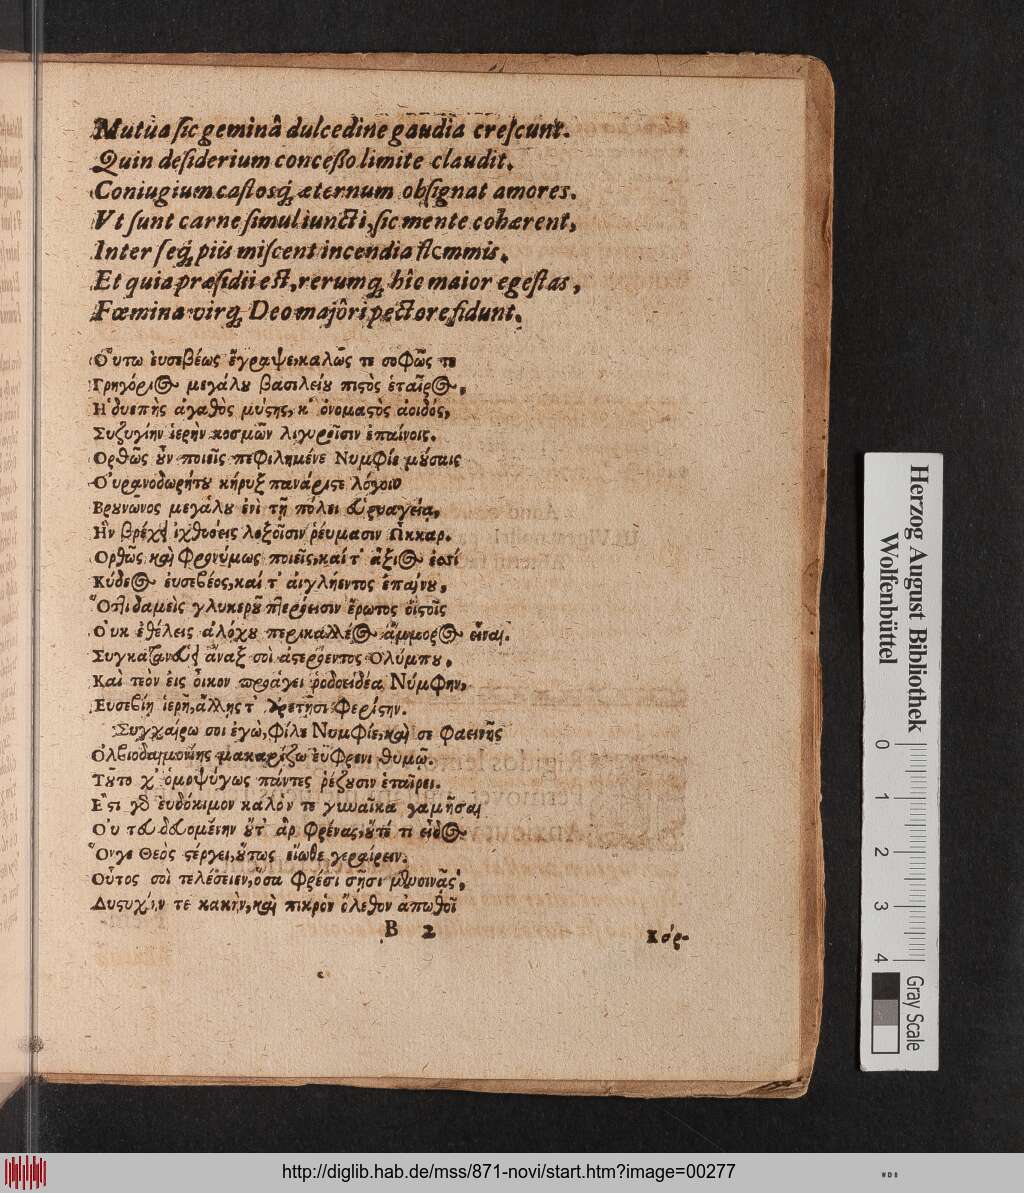 Mutua sic geminâ dulcedine gaudia crescunt.
Quin desiderium concesso limite claudit.
Coniugium castosq́; æternum obsignat amores.
Vt sunt carne simul iuncti, sic mente cohærent,
Inter seq́; piis miscent incendia flammis.
Et quia præsidii est, rerumq́; hîc maior egestas,
Fœmina virq́; Deo majôri pectore fidunt.
Οὕτω ἐυσεβέως ἔγραψε, καλῶς τε σοφῶς τε
Γρηγόριος μεγάλου βασιλείου πιστὸς ἑταῖρος,
Ἡδυεπὴς ἀγαθὸς μύστης, κ' ὀνομαστὸς ἀοιδός,
Συζυγίην ἱερὴν κοσμῶν λιγυροῖσιν ἐπαίνοις.
Ορθῶς οὖν ποιεῖς πεφιλημένε Νυμφίε μούσαις
Οὐρανοδωρήτου κήρυξ πανάριστε λόγοιο
Βρουνῶνος μεγάλου ἐνὶ τῇ πόλει ἐυρυαγείᾳ,
Ἣν βρέχει ἰχθυόεις λοξοῖσιν ῥεύμασιν Ὤκκαρ.
Ορθῶς καὶ φρονίμως ποιεῖς, καί τ' ἄξιος ἐσσί
Κύδεος ἐυσεβέος, καί τ' αἰγλήεντος ἐπαίνου,
Ὅττι δαμεὶς γλυκεροῦ πτερόεισιν ἔρωτος ὀϊστοῖς
Οὐκ ἐθέλεις ἀλόχου περικαλλέος ἄμμορος εἶναι.
Συγκαταινεύει ἄναξ σοὶ ἀστερόεντος Ολύμπου,
Καὶ τεὸν ἐις ὄικον προάγει ῥοδοειδέα Νύμφην,
Ευσεβίῃ ἱερῇ, ἄλλης τ' ἀρετῇσι φερίστην.
Συγχαίρω σοι ἐγὼ, φίλε Νυμφίε, καὶ σε φαεινῆς
Ολβιοδαιμονίης μακαρίζω ἐΰφρενι θυμῷ.
Τοῦτο χ' ὁμοψύχως πάντες ῥέζουσιν ἑταῖροι.
Εστι γὸ ἐυδόκιμον καλόν τε γυναῖκα γαμῆσαι
Ὅνγε Θεὸς στέργει, οὕτως εἴωθε γεραίρειν.
Οὗτος σοὶ τελέσειεν, ὅσα φρέσι σῇσι μενοινᾷς,
Δυστυχίην τε κακὴν, καὶ πικρὸν ὄλεθον ἀπωθοῖ
B 2
Κόρ-
Herzog August Bibliothek
Wolfenbüttel
0 1 2 3 4
Gray Scale
http://diglib.hab.de/mss/871-novi/start.htm?image=00277